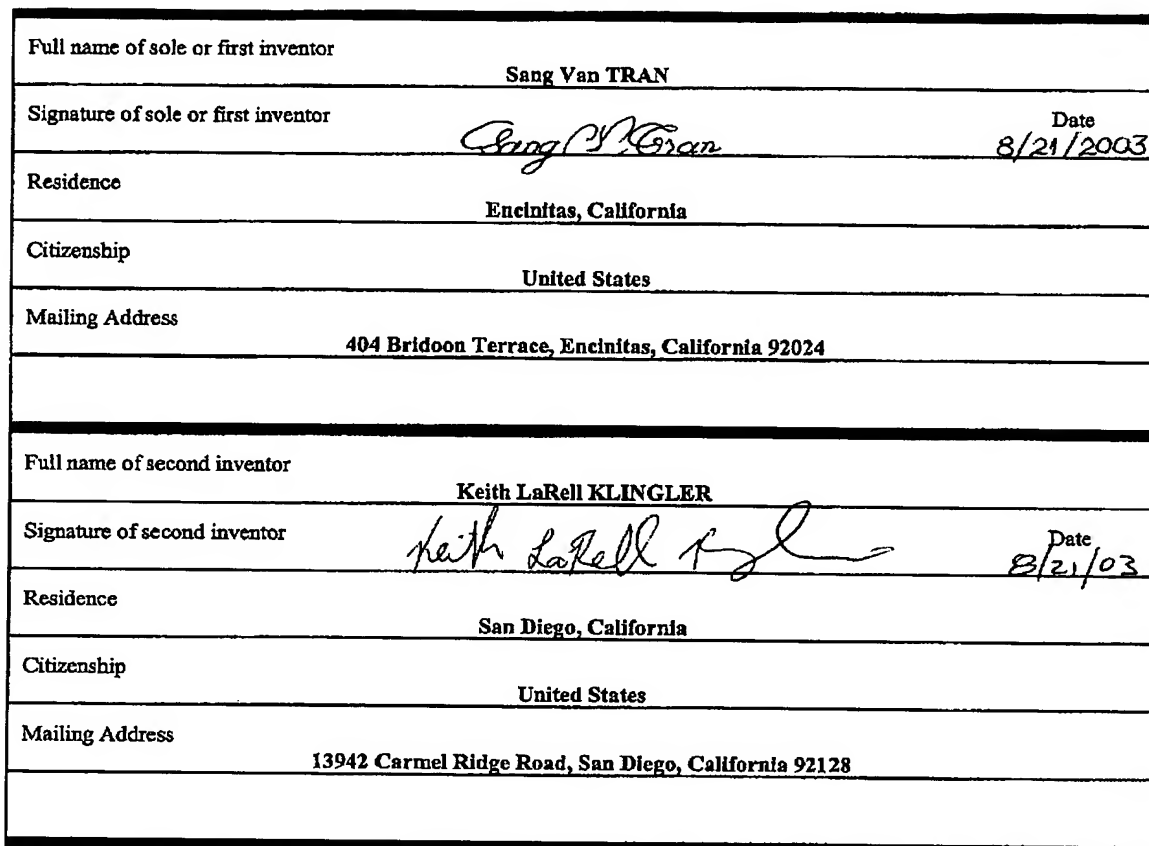 Full name of sole or first inventor
Sang Van TRAN
Signature of sole or first inventor Sang V. Tran Date
8/21/2003
Residence
Encinitas, California
Citizenship
United States
Mailing Address
404 Bridoon Terrace, Encinitas, California 92024
Full name of second inventor
Keith LaRell KLINGLER
Signature of second inventor Keith LaRell Date
8/21/03
Residence
San Diego, California
Citizenship
United States
Mailing Address
13942 Carmel Ridge Road, San Diego, California 92128